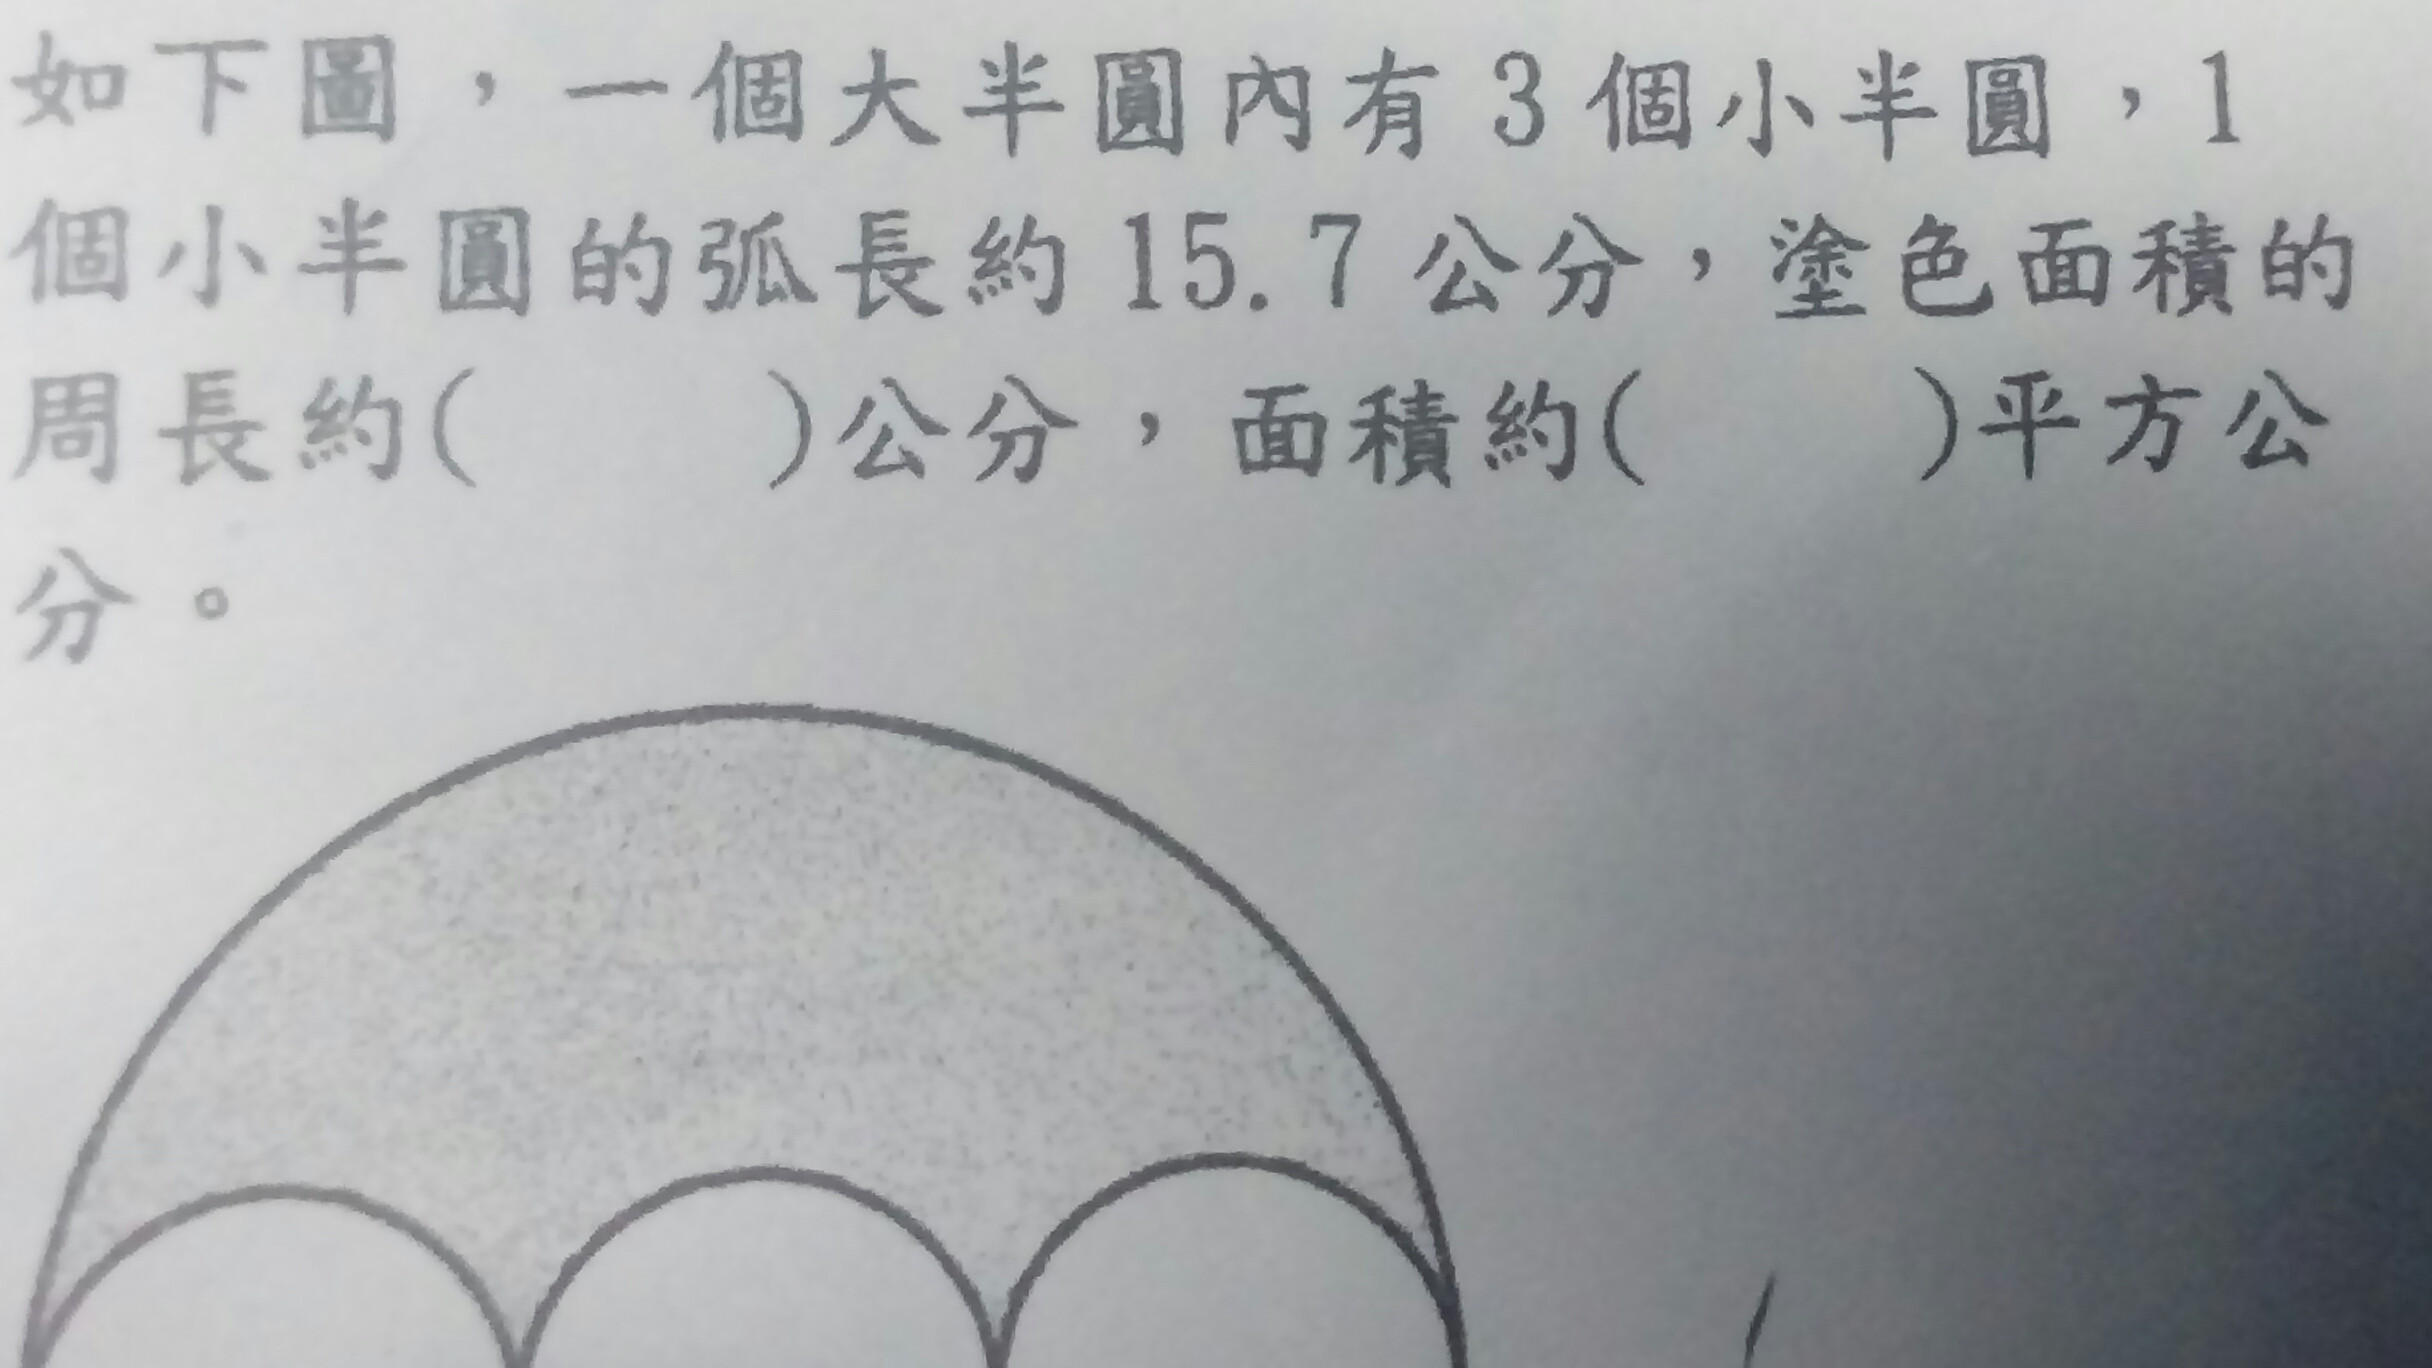 如下圖，一個大半圓內有3個小半圓，1
個小半圓的弧長約15.7公分，塗色面積的
周長約(　　)公分，面積約(　　)平方公
分。